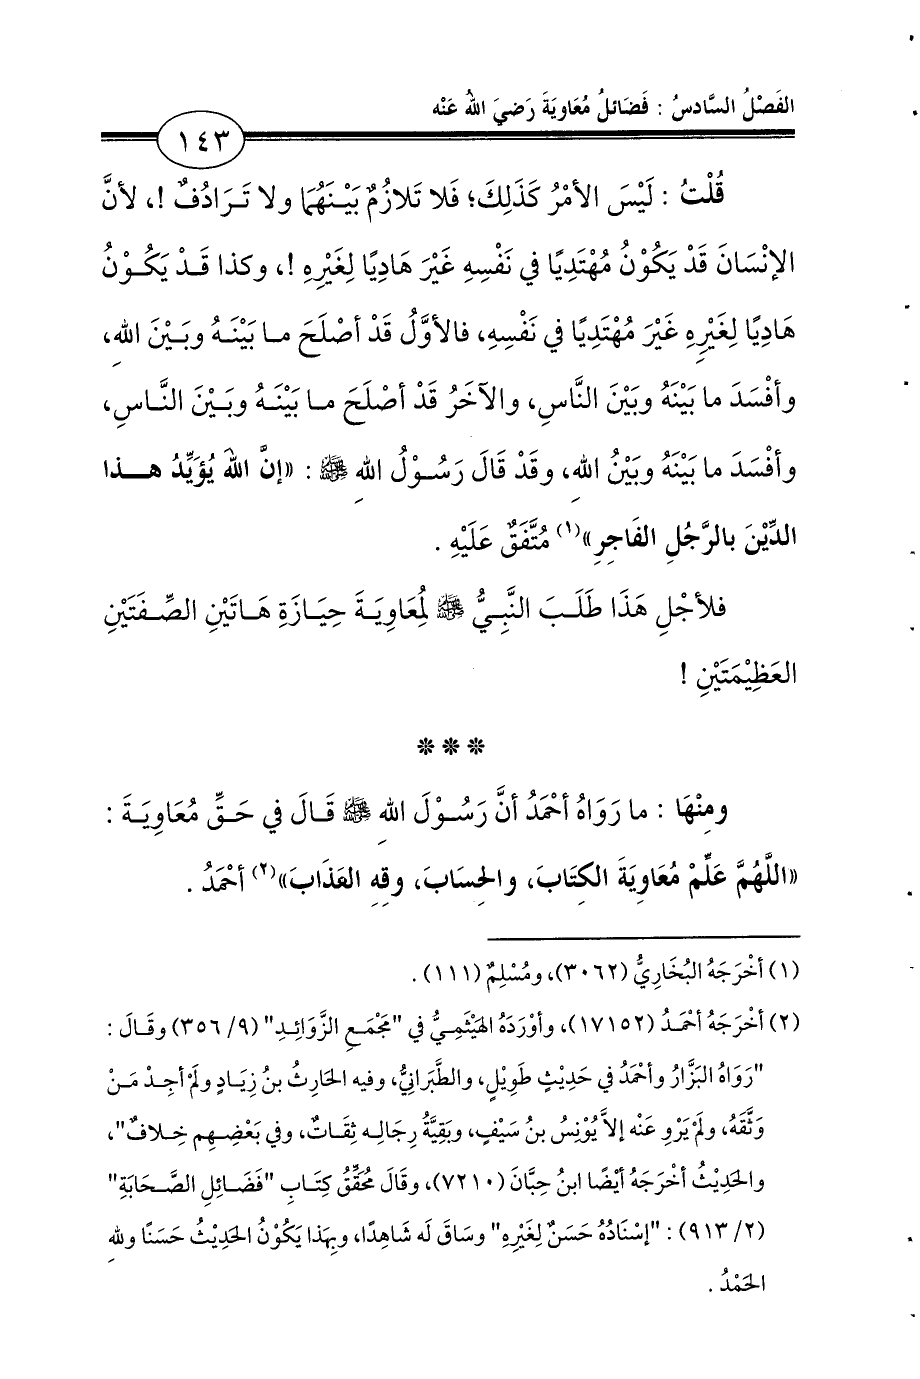 الفَصْلُ السَّادسُ : فَضَائلُ مُعَاوِيَةَ رَضيَ اللهُ عَنْه
١٤٣
قُلْتُ : لَيْسَ الأمْرُ كَذَلِكَ؛ فَلا تَلازُمٌ بَيْنَهُمَا ولا تَرَادُفٌ !، لأنَّ
الإنْسَانَ قَدْ يَكُوْنُ مُهْتَدِيًا في نَفْسِهِ غَيْرَ هَاديًا لِغَيْرِهِ !، وكذا قَدْ يَكُوْنُ
هَاديًا لِغَيْرِهِ غَيْرَ مُهْتَدِيًا في نَفْسِهِ، فالأوَّلُ قَدْ أصْلَحَ ما بَيْنَهُ وبَيْنَ اللهِ،
وأفْسَدَ ما بَيْنَهُ وبَيْنَ النَّاسِ، والآخَرُ قَدْ أصْلَحَ ما بَيْنَهُ وبَيْنَ النَّاسِ،
وأفْسَدَ ما بَيْنَهُ وبَيْنُ اللهِ، وقَدْ قَالَ رَسُوْلُ اللهِ ﷺ : «إنَّ اللهَ يُؤَيِّدُ هذا
الدِّيْنَ بالرَّجُلِ الفَاجِرِ»(١) مُتَّفَقٌ عَلَيْهِ .
فلأجْلِ هَذَا طَلَبَ النَّبِيُّ ﷺ لمُعَاوِيَةَ حِيَازَةِ هَاتَيْنِ الصِّفَتَيْنِ
العَظِيْمَتَيْنِ !
***
ومِنْهَا : ما رَوَاهُ أحْمَدُ أنَّ رَسُوْلَ اللهِ ﷺ قَالَ في حَقِّ مُعَاوِيَةَ :
«اللَّهُمَّ عَلِّمْ مُعَاوِيَةَ الكِتَابَ، والحِسَابَ، وقِهِ العَذَابَ»(٢) أحْمَدُ .
(١) أخْرَجَهُ البُخَاريُّ (٣٠٦٢)، ومُسْلِمٌ (١١١) .
(٢) أخْرَجَهُ أحْمَدُ (١٧١٥٢)، وأوْرَدَهُ الهَيْثَمِيُّ في "مَجْمَعِ الزَّوَائِدِ" (٩/ ٣٥٦) وقَالَ :
"رَوَاهُ البَزَّارُ وأحْمَدُ في حَدِيْثٍ طَوِيْلٍ، والطَّبَرانيُّ، وفيه الحَارِثُ بنُ زِيَادٍ ولَمْ أجِدْ مَنْ
وَثَّقَهُ، ولَمْ يَرْوِ عَنْه إلاَّ يُوْنِسُ بنُ سَيْفٍ، وبَقِيَّةُ رِجَالِه ثِقَاتٌ، وفي بَعْضِهِم خِلافٌ"،
والحَدِيْثُ أخْرَجَهُ أيْضًا ابنُ حِبَّانَ (٧٢١٠)، وقَالَ مُحَقِّقُ كِتَابِ "فَضَائِلِ الصَّحَابَةِ"
(٢/ ٩١٣) : "إسْنَادُهُ حَسَنٌ لِغَيْرِهِ" وسَاقَ لَه شَاهِدًا، وبِهَذا يَكُوْنُ الحَدِيْثُ حَسَنًا وللهِ
الحَمْدُ .